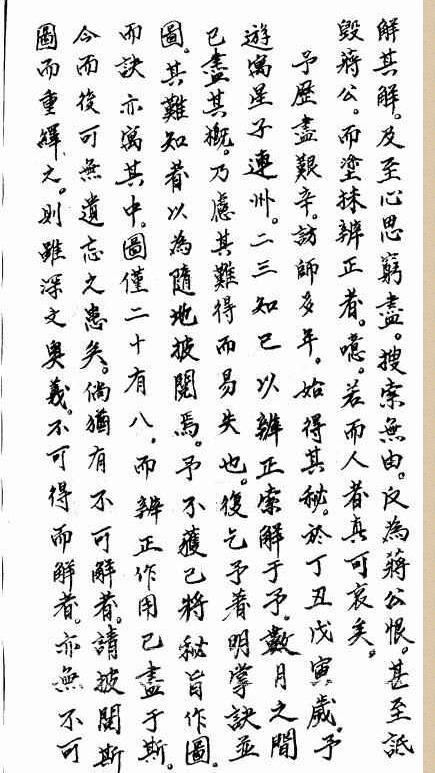 解其解。及至心思窮盡。搜索無由。反為蔣公恨。甚至詆
毀蔣公。而塗抹辨正者。噫。若而人者真可哀矣。
予歷盡艱辛。訪師多年。始得其秘。於丁丑戊寅歲。予
遊寓星子連州。二三知己以辨正索解于予。數月之間
已盡其概。乃慮其難得而易失也。復乞予着明掌訣並
圖。其難知者以為隨地披閱焉。予不獲已將秘旨作圖。
而訣亦寓其中。圖僅二十有八。而辨正作用已盡于斯。
今而後可無遺忘之患矣。倘猶有不可解者。請披閱斯
圖而重繹之。則雖深文奥義。不可得而解者。亦無不可